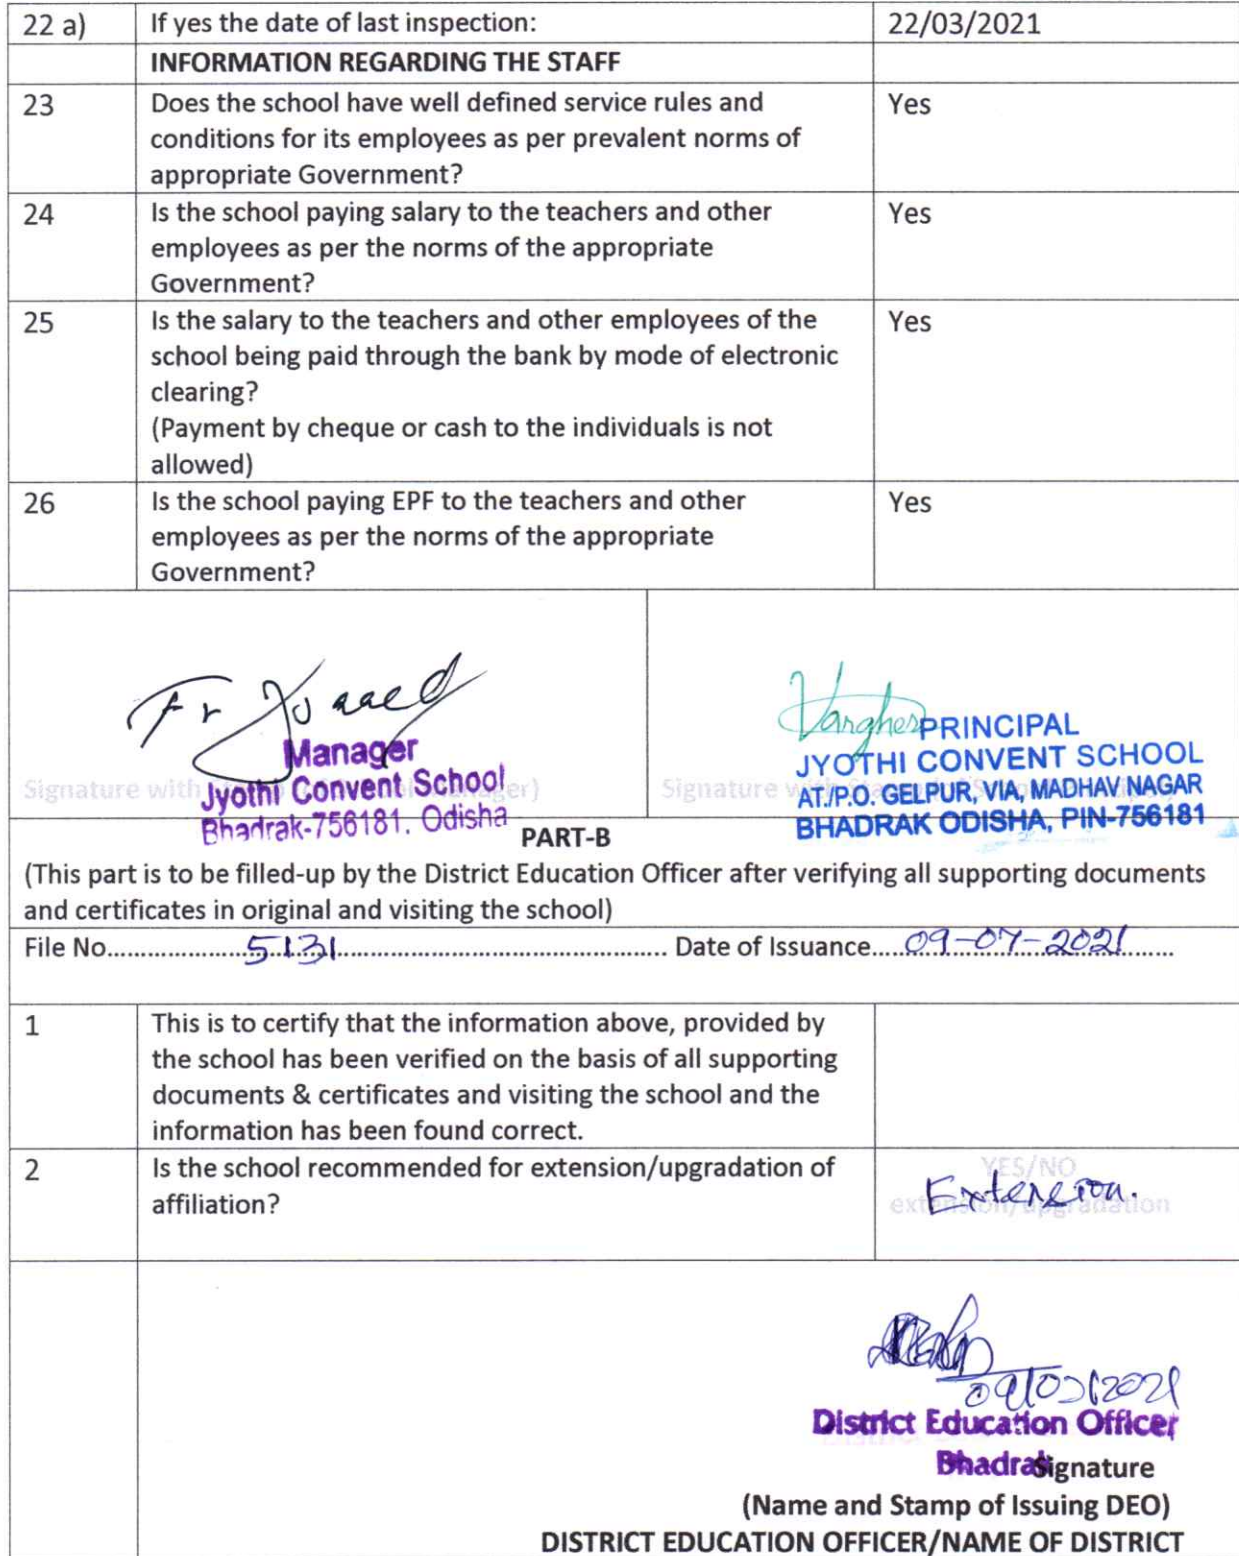 22 a) If yes the date of last inspection: 22/03/2021
INFORMATION REGARDING THE STAFF
23 Does the school have well defined service rules and Yes
conditions for its employees as per prevalent norms of
appropriate Government?
24 Is the school paying salary to the teachers and other Yes
employees as per the norms of the appropriate
Government?
25 Is the salary to the teachers and other employees of the Yes
school being paid through the bank by mode of electronic
clearing?
(Payment by cheque or cash to the individuals is not
allowed)
26 Is the school paying EPF to the teachers and other Yes
employees as per the norms of the appropriate
Government?
Fr
Manager
Jyothi Convent School
Bhadrak-756181. Odisha
Signature with
PRINCIPAL
JYOTHI CONVENT SCHOOL
AT./P.O. GELPUR, VIA, MADHAV NAGAR
BHADRAK ODISHA, PIN-756181
Signature
PART-B
(This part is to be filled-up by the District Education Officer after verifying all supporting documents
and certificates in original and visiting the school)
File No. 5131 Date of Issuance 09-07-2021
1 This is to certify that the information above, provided by
the school has been verified on the basis of all supporting
documents & certificates and visiting the school and the
information has been found correct.
2 Is the school recommended for extension/upgradation of YES/NO
affiliation? extension/upgradation
Extension.
District Education Officer
Bhadrak
Signature
(Name and Stamp of Issuing DEO)
DISTRICT EDUCATION OFFICER/NAME OF DISTRICT